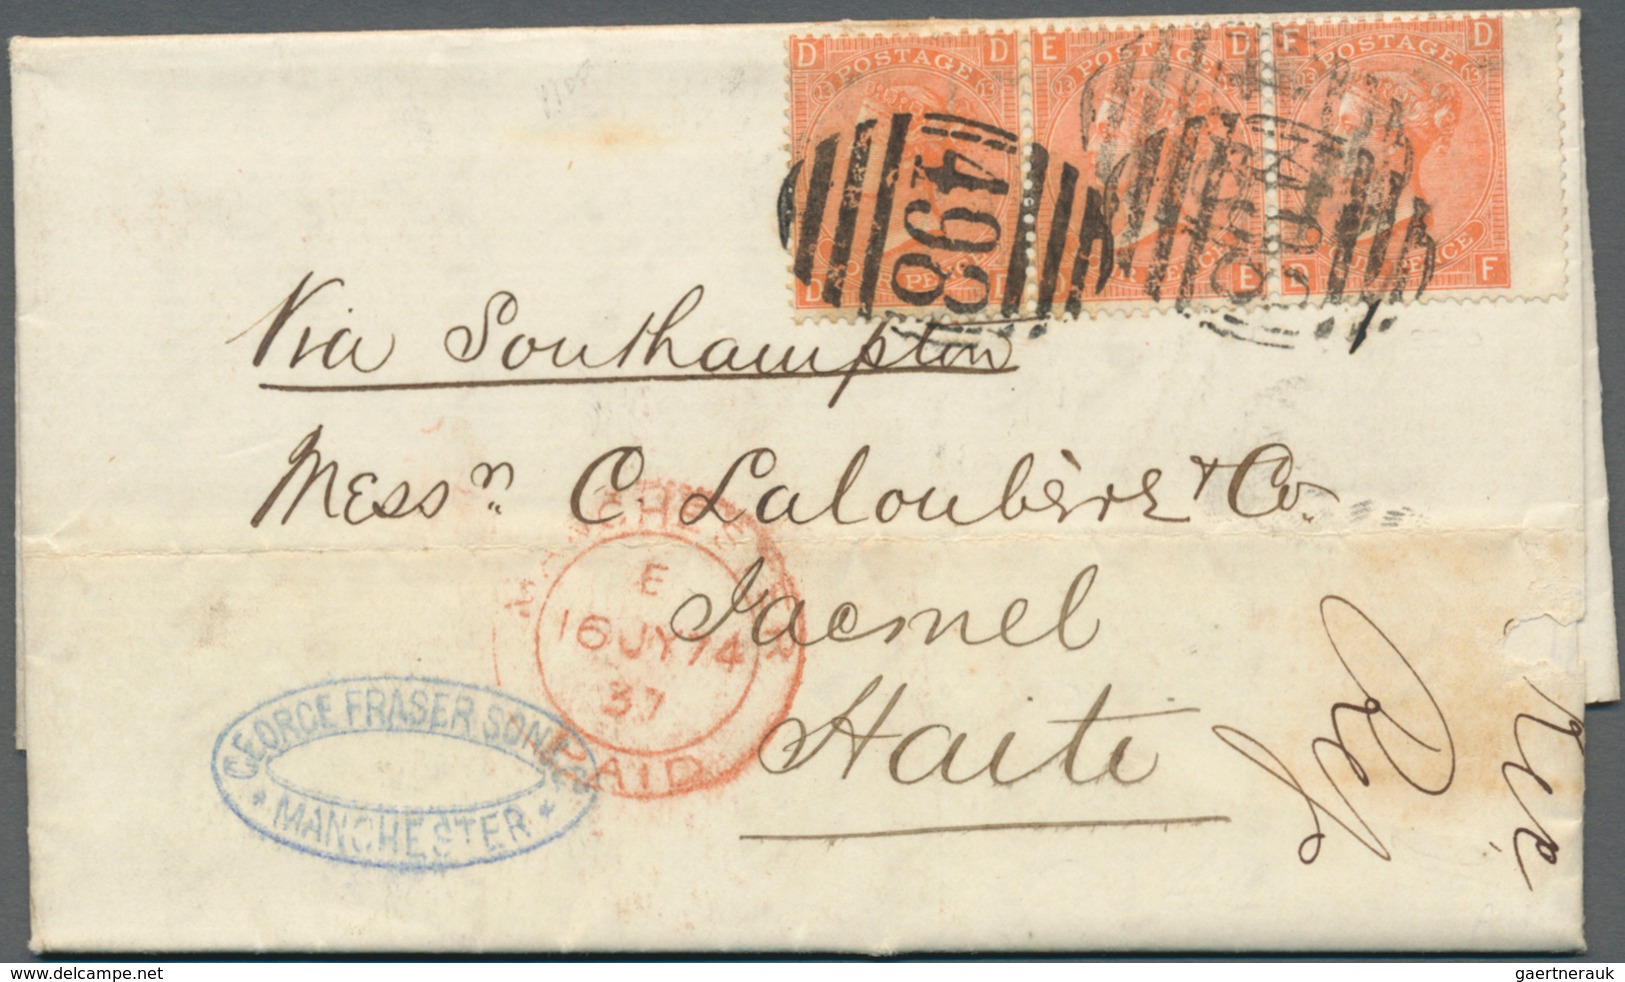 D POSTAGE D E POSTAGE D F POSTAGE D
13 13 13 13
498
D D E D F
Via Southampton
Messrs. C. Laloubère & Co.
Jacmel
Haiti
MANCHESTER
E
16 JY 74
37
PAID
GEORGE FRASER SON & Co
* MANCHESTER *
www.delcampe.net
gaertnerauk